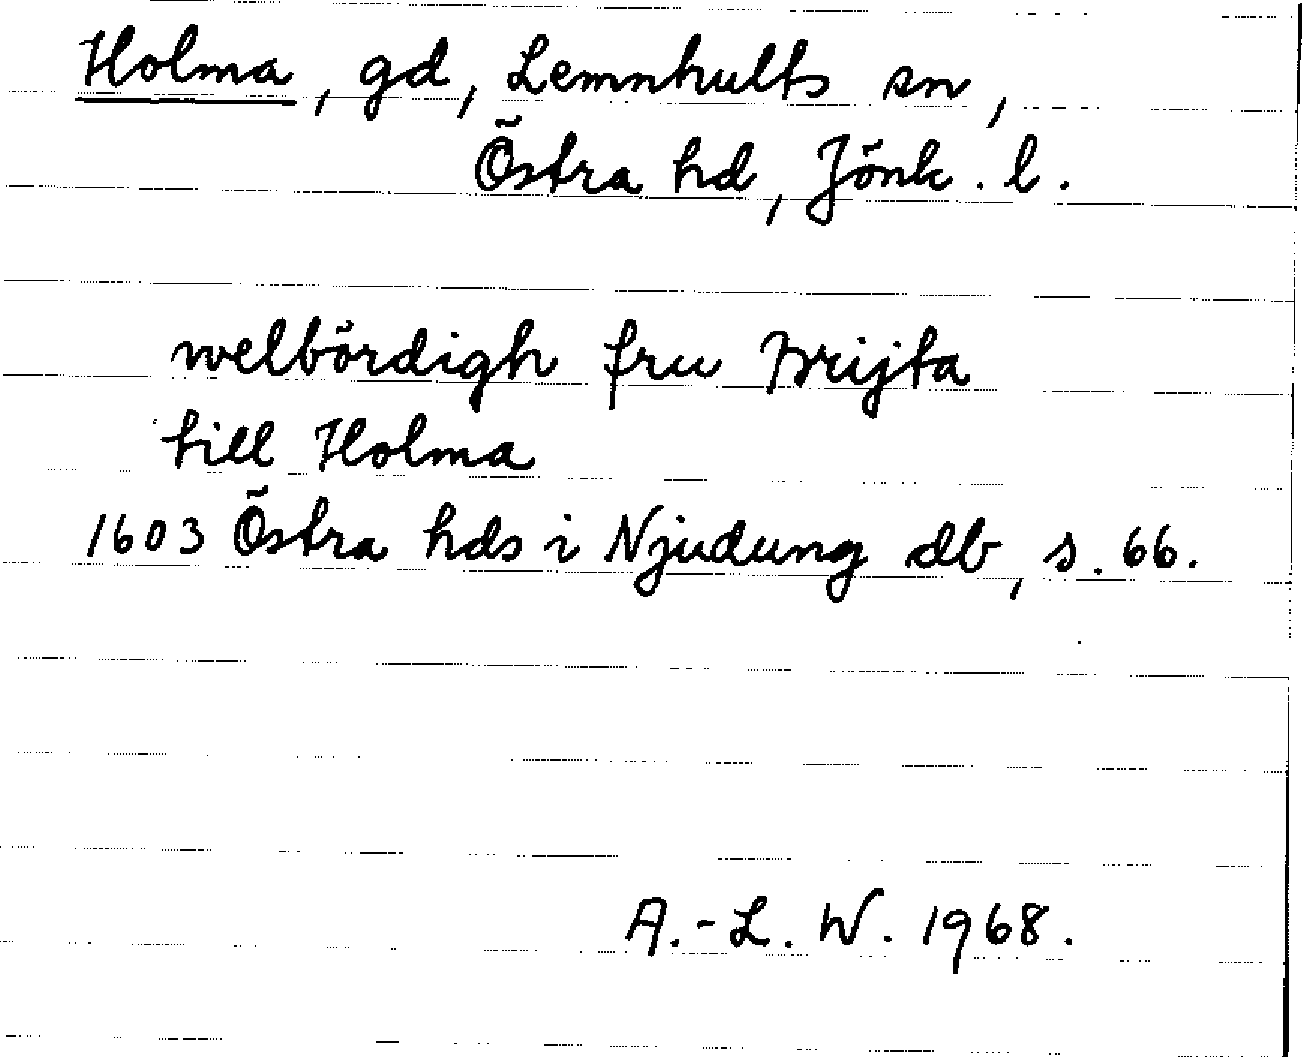 Holma, gd, Lemnhults sn,
Östra hd, Jönk. l.
welbördigh fru Brijta
till Holma
1603 Östra hds i Njudung db, s. 66.
A.-L. W. 1968.